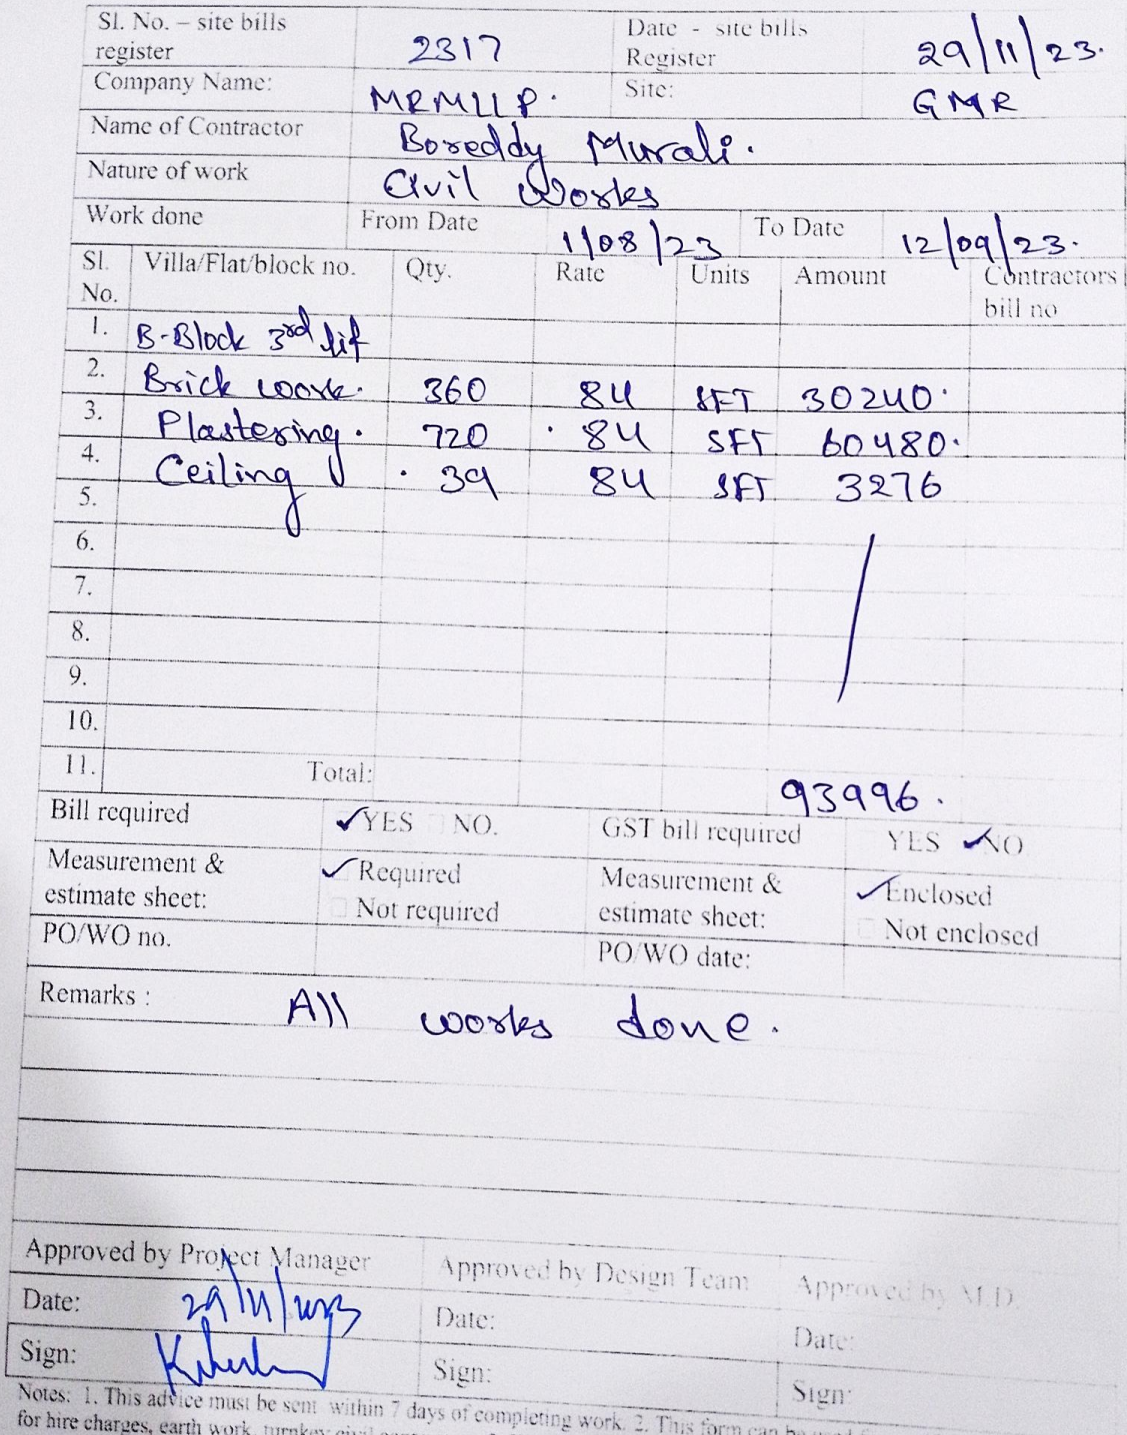 Sl. No. – site bills register 2317 Date - site bills Register 29/11/23.
Company Name: MRMLLP. Site: GMR
Name of Contractor Boreddy Murali.
Nature of work Civil Works
Work done From Date 1/08/23 To Date 12/09/23.
Sl. No. Villa/Flat/block no. Qty. Rate Units Amount Contractors bill no
1. B-Block 3rd lif
2. Brick work. 360 84 SFT 30240.
3. Plastering. 720 84 SFT 60480.
4. Ceiling 39 84 SFT 3276
5.
6.
7.
8.
9.
10.
11. Total: 93996.
Bill required ✓YES NO. GST bill required YES ✓NO
Measurement & estimate sheet: ✓Required Not required Measurement & estimate sheet: ✓Enclosed Not enclosed
PO/WO no. PO/WO date:
Remarks : All works done.
Approved by Project Manager Approved by Design Team Approved by M.D.
Date: 29/11/2023 Date: Date:
Sign: Sign: Sign:
Notes: 1. This advice must be sent within 7 days of completing work. 2. This form can be used
for hire charges, earth work, turnkey